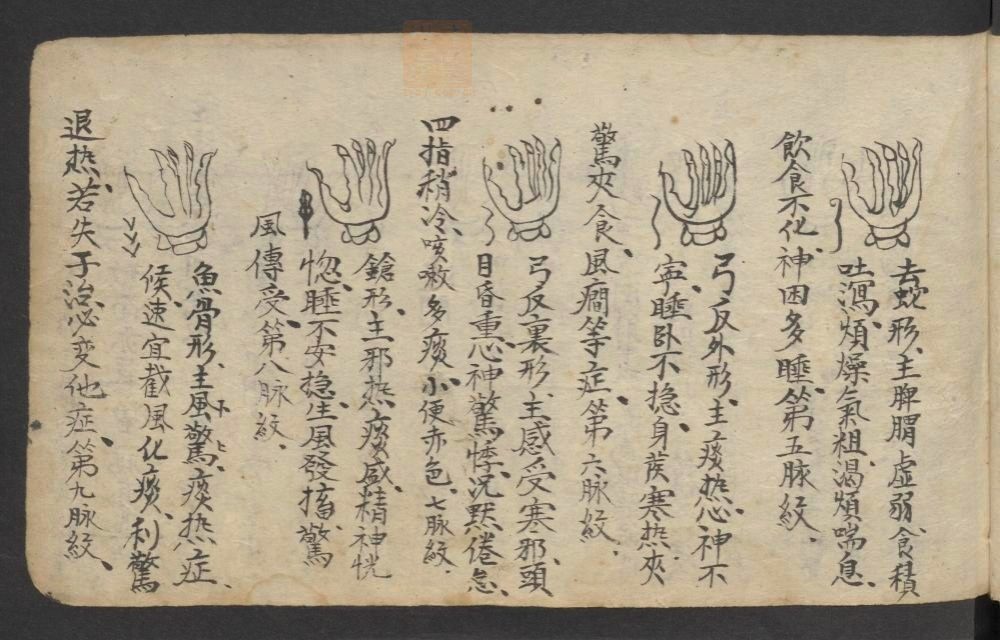 去蛇形、主脾胃虛弱、食積
吐瀉、煩燥氣粗、渴煩喘息、
飲食不化、神困多睡、第五脉紋、
弓反外形、主痰热、心神不
寜、睡卧不穏、身疾寒热、夾
驚夾食、風癎等症、第六脉紋、
弓反裏形、主感受寒邪、頭
目昏重、心神驚悸、沉默倦怠、
四指稍冷、咳嗽多痰、小便赤色、七脉紋、
鎗形、主邪热、痰盛、精神恍
惚、睡不安穏、生風發搐、驚
風傳受、第八脉紋、
魚骨形、主風驚、痰热症、
候、速宜截風化痰、利驚
退热、若失于治、必变他症、第九脉紋、